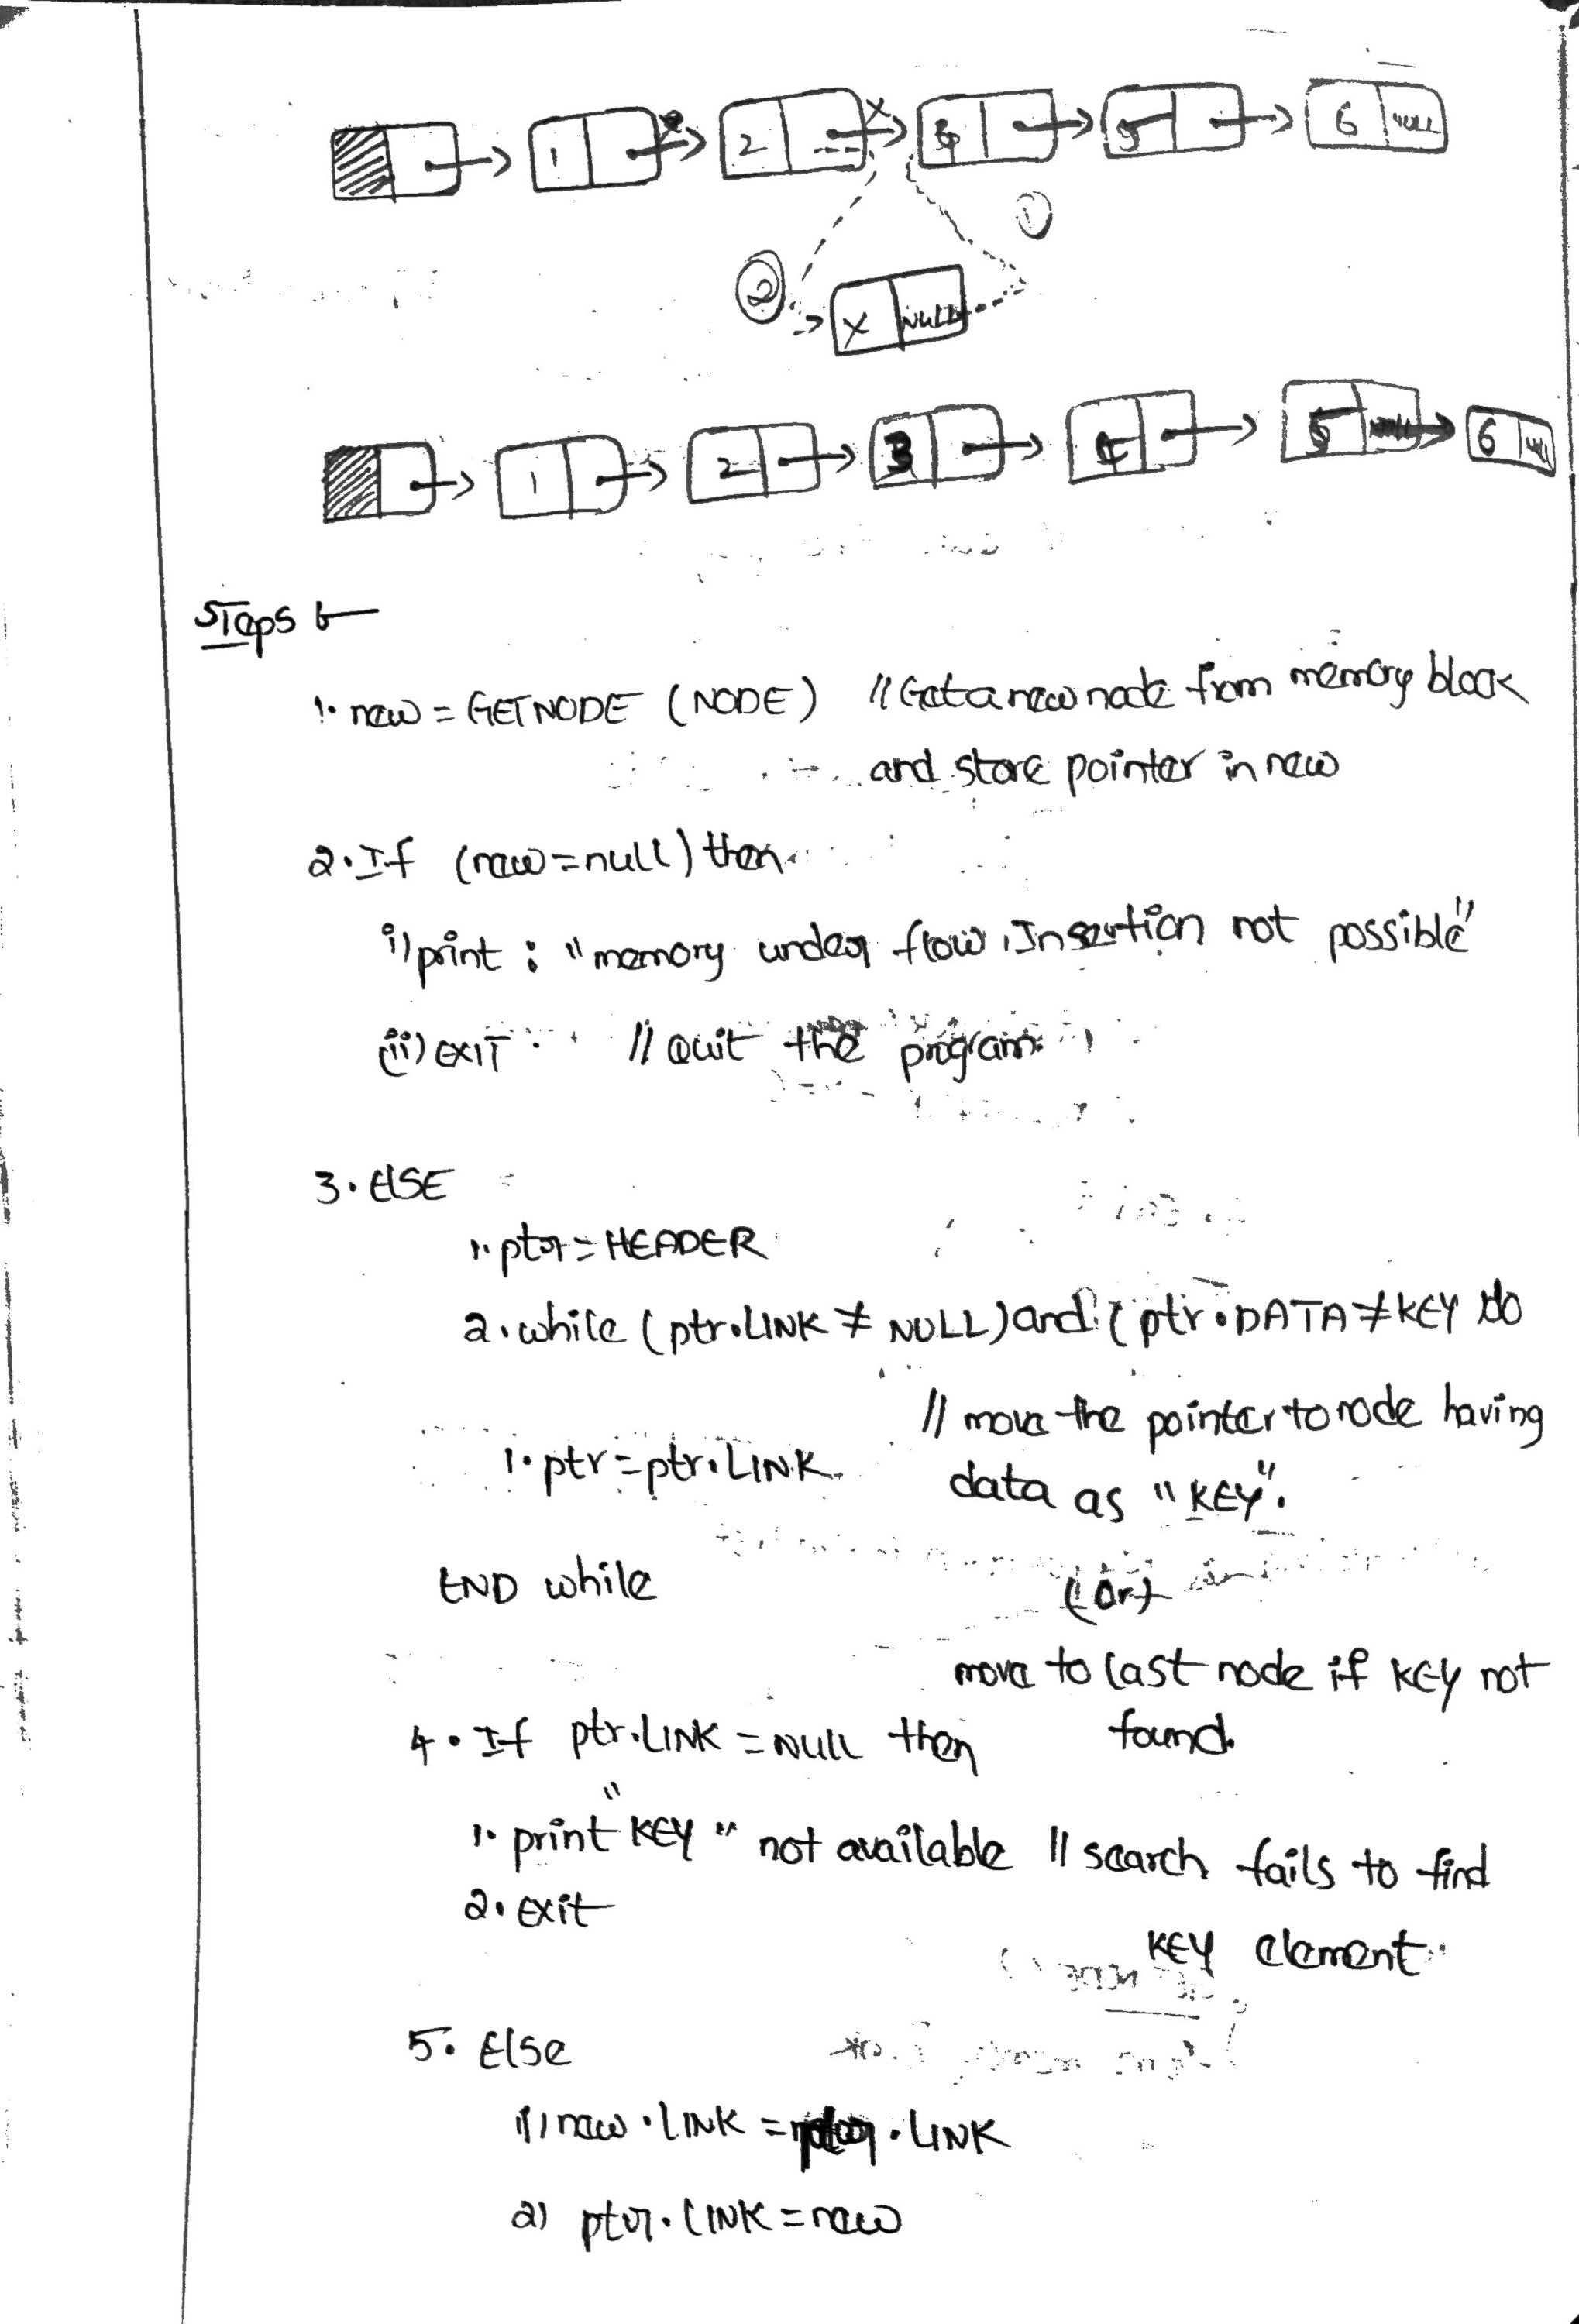 1 2 X 4 5 6 NULL
①
②
X NULL
1 2 3 4 5 6 NULL
Steps :-
1. new = GETNODE (NODE) // Get a new node from memory block
and store pointer in new
2. If (new = null) then
i) print : "memory under flow, Insertion not possible"
(ii) EXIT. // Quit the program
3. ELSE
1. ptr = HEADER
2. while (ptr.LINK ≠ NULL) and (ptr.DATA ≠ KEY) do
// move the pointer to node having
1. ptr = ptr.LINK.
data as "KEY".
END while
(or)
move to last node if KEY not
4. If ptr.LINK = NULL then found.
1. print "KEY" not available // search fails to find
2. exit
KEY element
5. Else
1) new.LINK = ptr.LINK
2) ptr.LINK = new